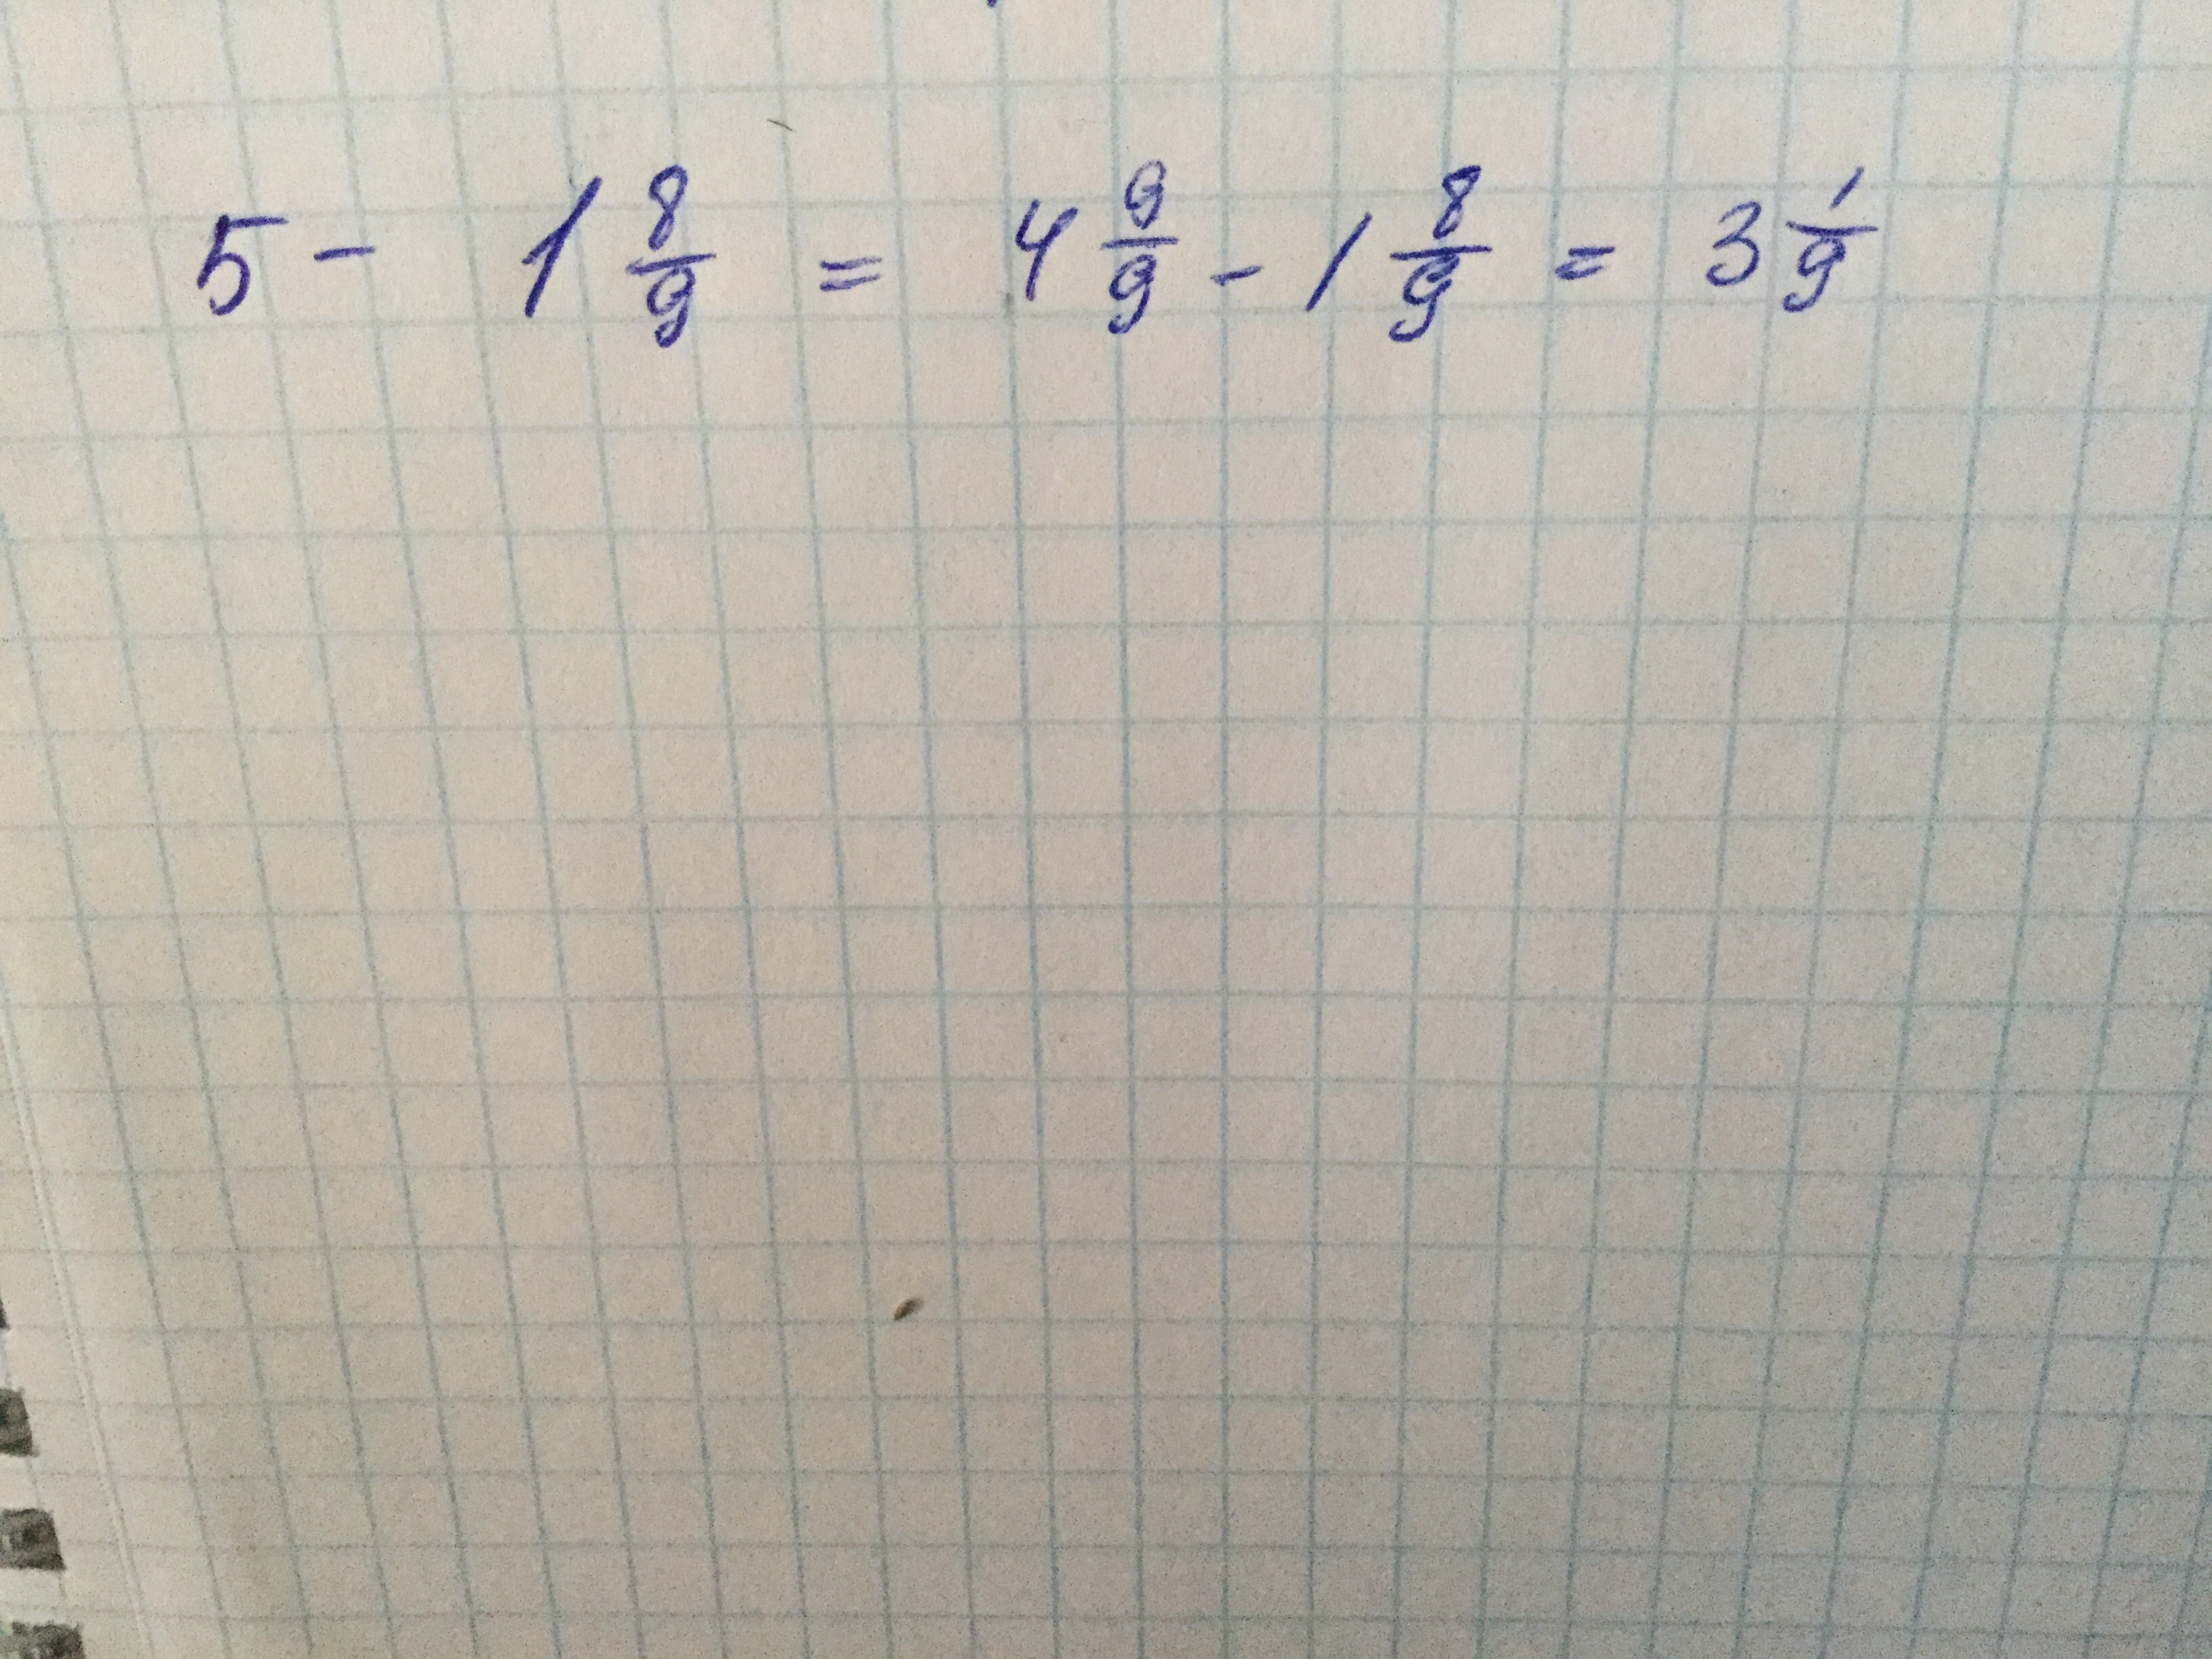 5 - 1 8/9 = 4 9/9 - 1 8/9 = 3 1/9